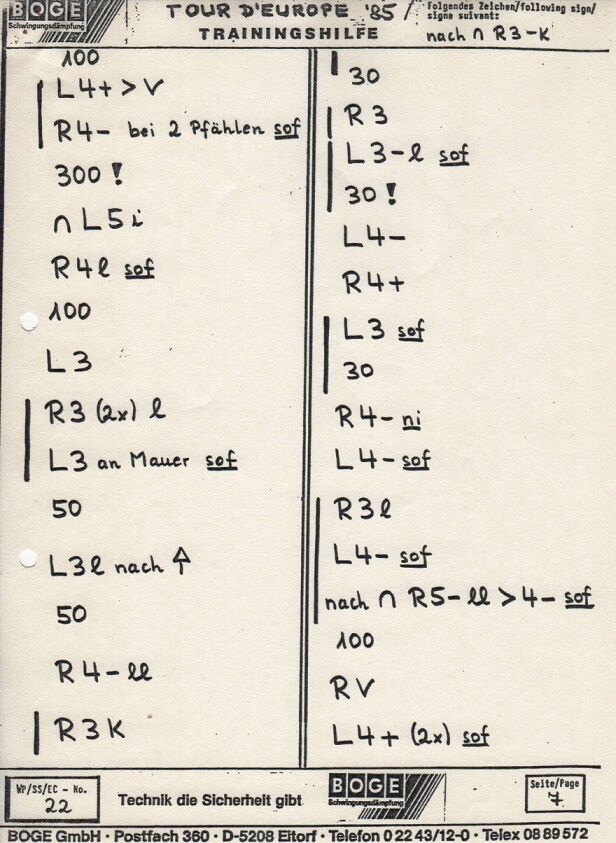 BOGE
Schwingungsdämpfung
TOUR D'EUROPE '85 /
TRAININGSHILFE
Folgendes Zeichen/following sign/
signe suivant:
nach ∩ R3-K
100
L4+ > V
R4- bei 2 Pfählen sof
300 !
∩ L5 i
R4l sof
100
L3
R3 (2x) l
L3 an Mauer sof
50
L3l nach ↑
50
R4-ll
R3K
30
R3
L3-l sof
30 !
L4-
R4+
L3 sof
30
R4- ni
L4- sof
R3l
L4- sof
nach ∩ R5-ll > 4- sof
100
RV
L4+ (2x) sof
WP/SS/EC - No.
22
Technik die Sicherheit gibt
BOGE
Schwingungsdämpfung
Seite/Page
7
BOGE GmbH · Postfach 360 · D-5208 Eitorf · Telefon 0 22 43/12-0 · Telex 08 89 572